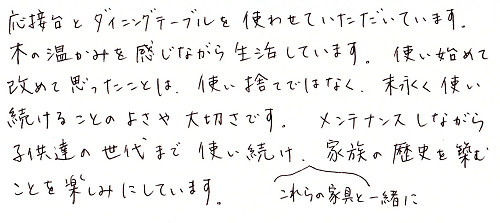 応接台とダイニングテーブルを使わせていただいています。
木の温かみを感じながら生活しています。使い始めて
改めて思ったことは、使い捨てではなく、末永く使い
続けることのよさや大切さです。メンテナンスしながら
子供達の世代まで使い続け、家族の歴史を築む
ことを楽しみにしています。
これらの家具と一緒に